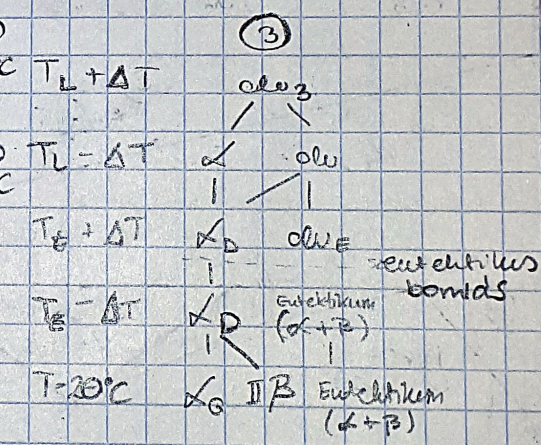 3
T_L + ΔT olv_3
T_L - ΔT α olv
T_E + ΔT α_D olv_E
eutektikus
bomlás
T_E - ΔT α_D Eutektikum
(α + β)
T=20°C α_G II β Eutektikum
(α + β)